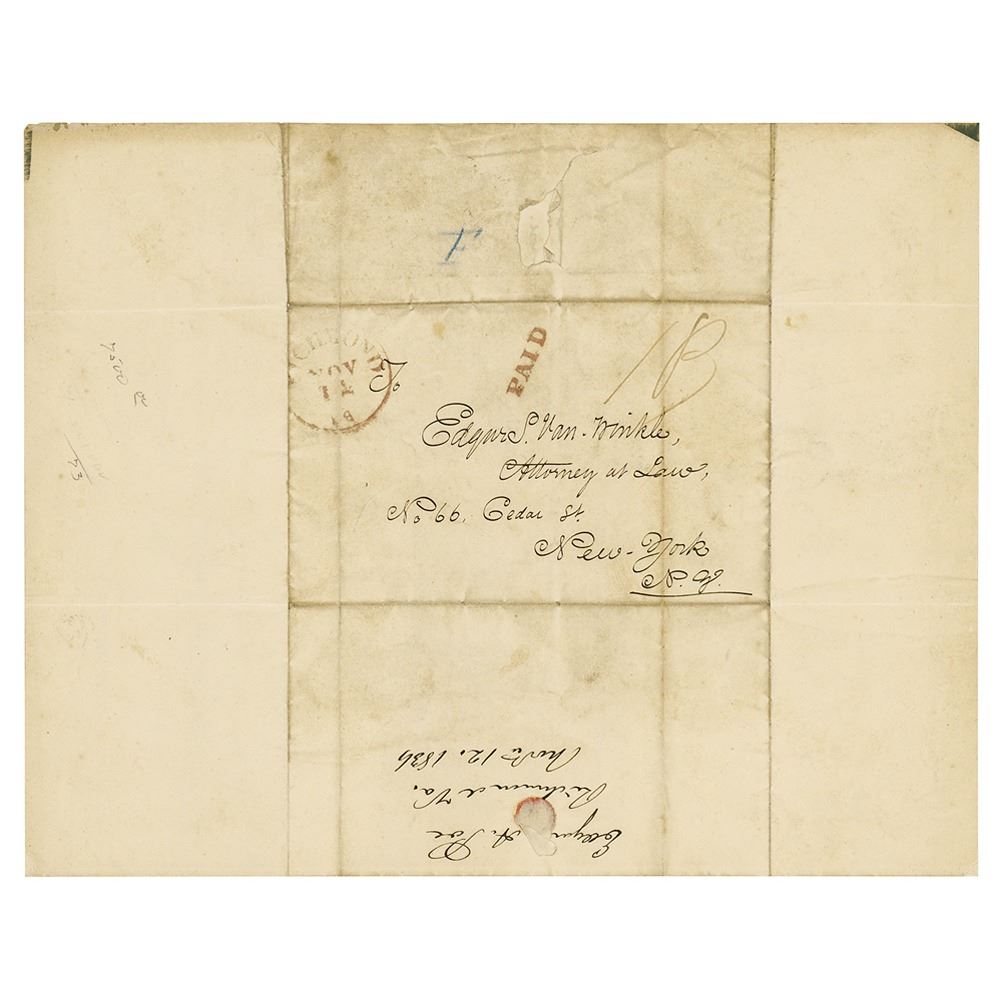 RICHMOND
NOV
PAID
To
Edgar S. Van-Winkle,
Attorney at Law,
No 66, Cedar St.
New-York
N. Y.
Edgar A. Poe
Richmond Va.
Nov 12. 1836